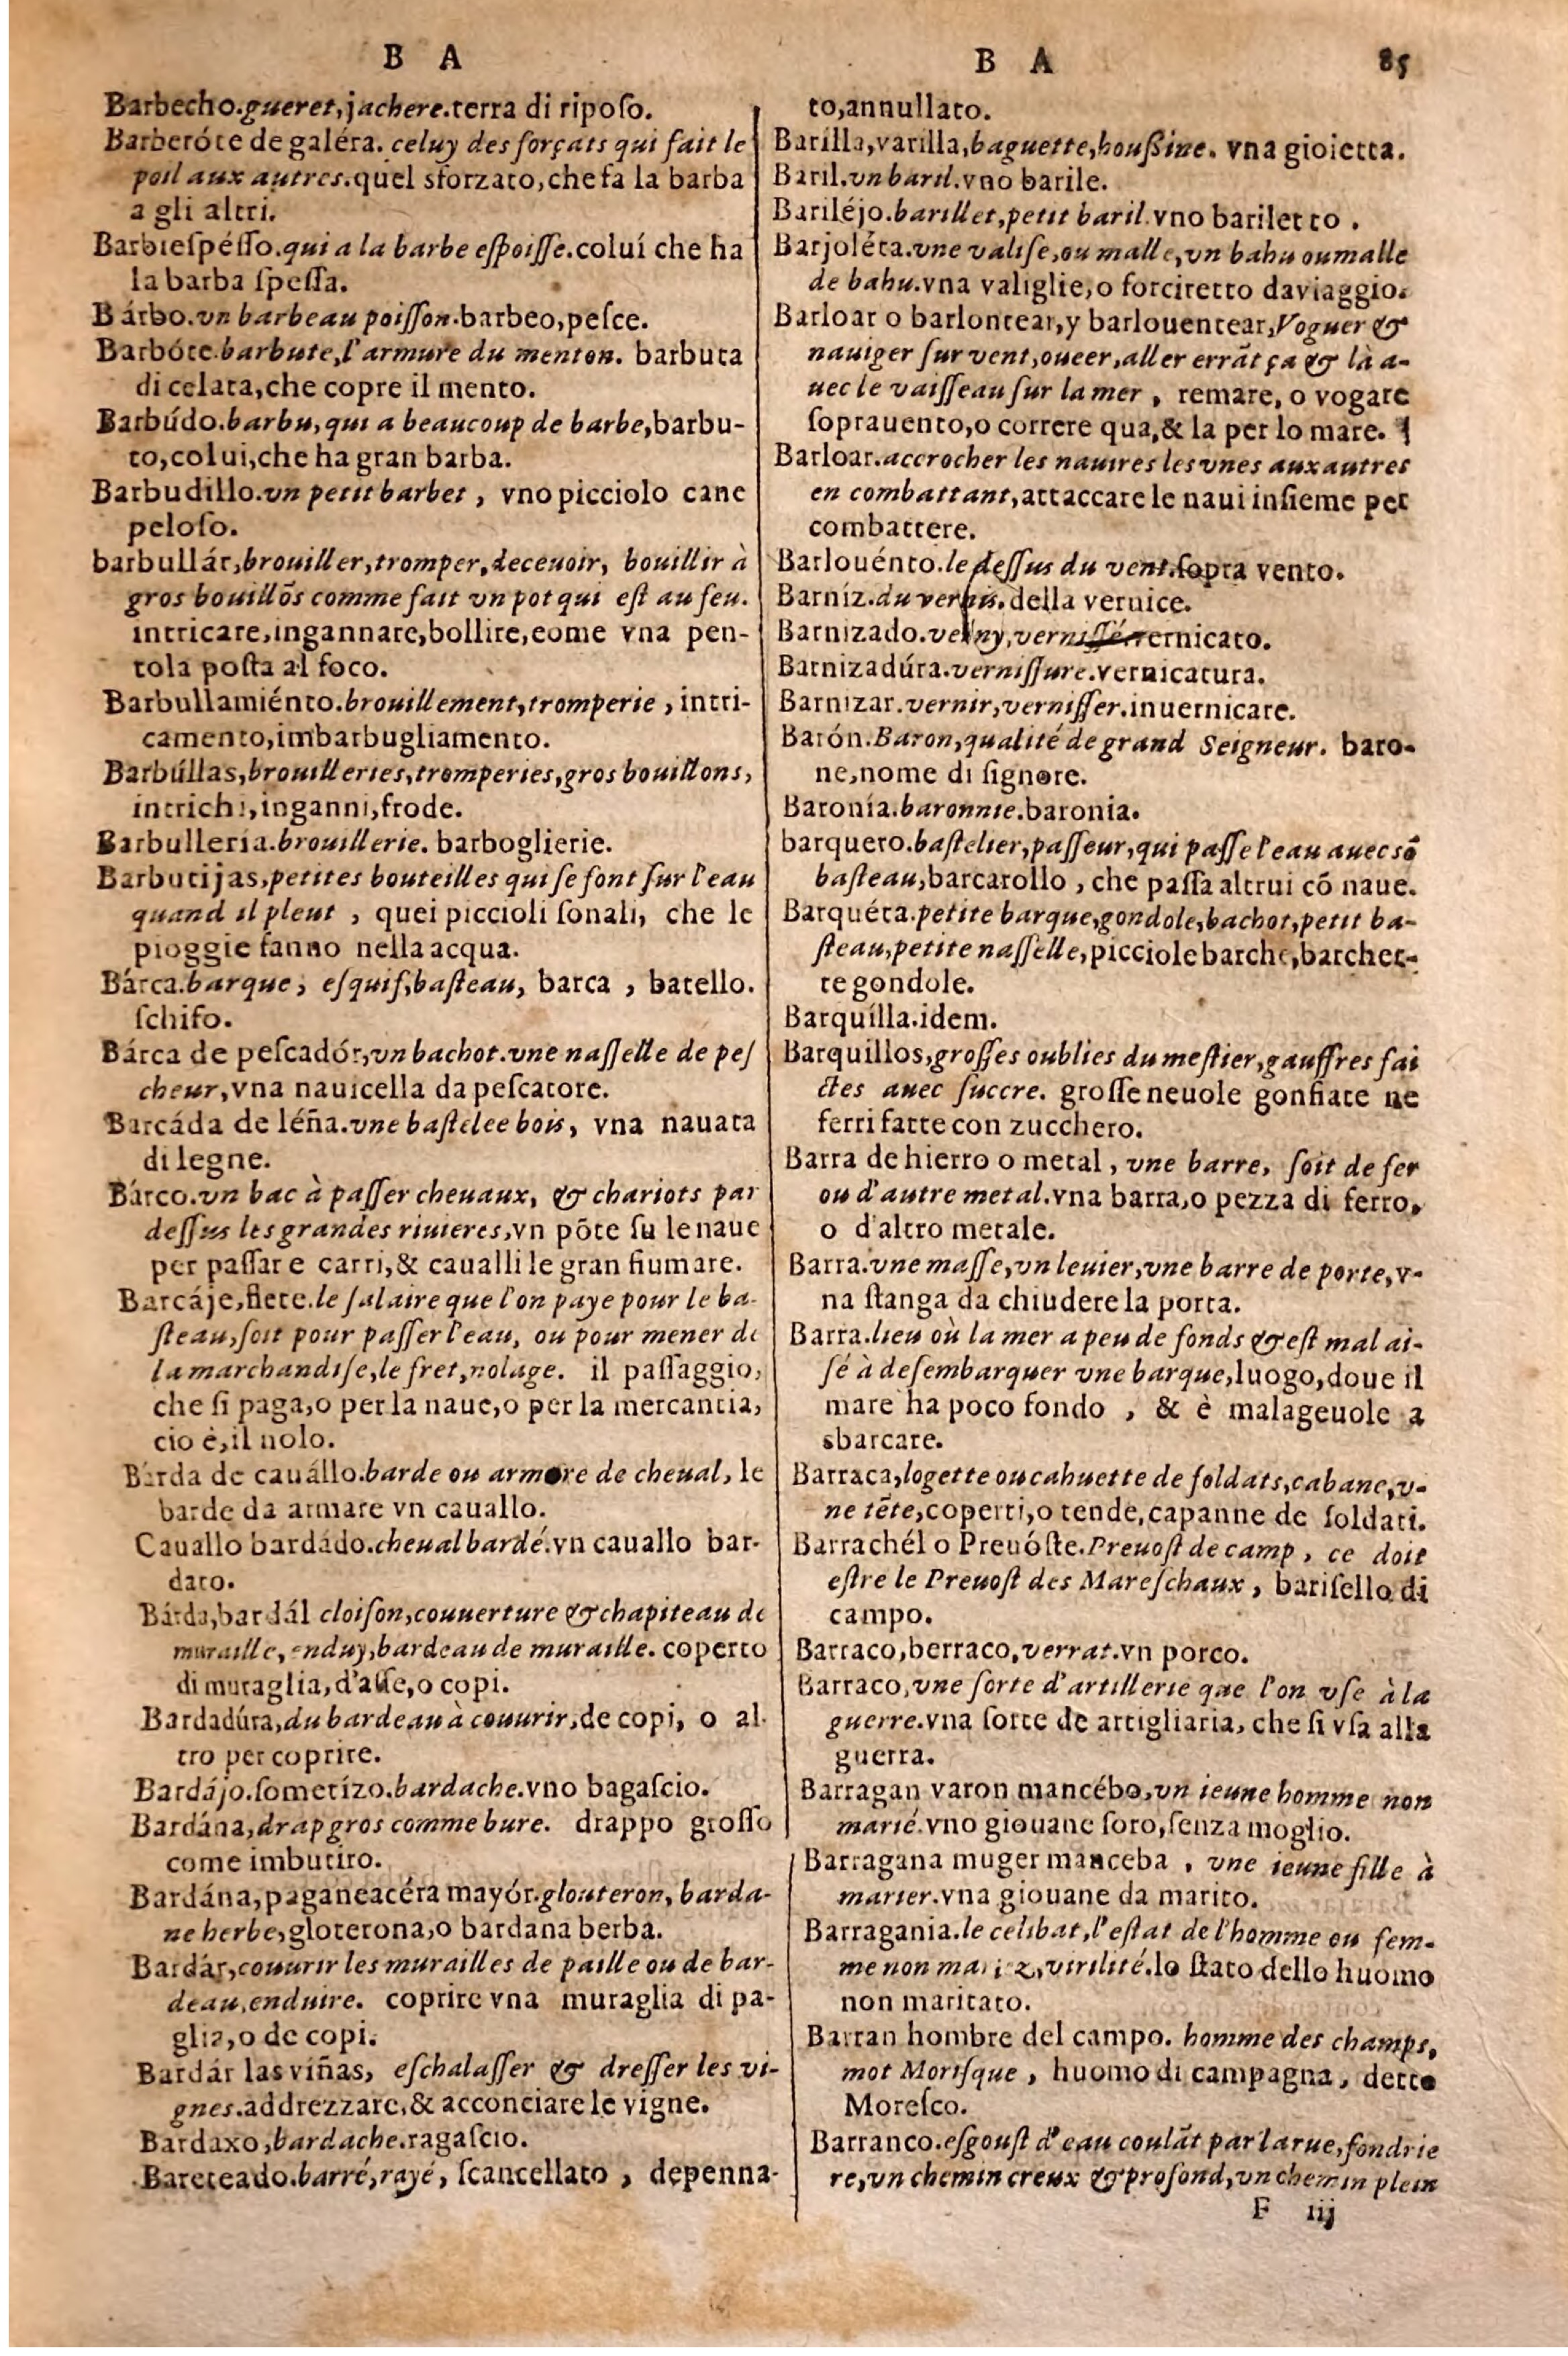 B A
Barbecho.gueret,jachere.terra di riposo.
Barberóte de galéra. celuy des forçats qui fait le
poil aux autres.quel sforzato,che fa la barba
a gli altri.
Barbiespésso.qui a la barbe espoisse.coluí che ha
la barba spessa.
Bárbo.vn barbeau poisson.barbeo,pesce.
Barbóte.barbute,l'armure du menton. barbuta
di celata,che copre il mento.
Barbúdo.barbu,qui a beaucoup de barbe,barbu-
to,colui,che ha gran barba.
Barbudillo.vn petit barbet , vno picciolo cane
peloso.
barbullár,brouiller,tromper,deceuoir, bouillir à
gros bouillõs comme fait vn pot qui est au feu.
intricare,ingannare,bollire,eome vna pen-
tola posta al foco.
Barbullamiénto.brouillement,tromperie , intri-
camento,imbarbugliamento.
Barbúllas,brouilleries,tromperies,gros bouillons,
intrichi,inganni,frode.
Barbulleria.brouillerie. barboglierie.
Barbutijas,petites bouteilles qui se font sur l'eau
quand il pleut , quei piccioli sonali, che le
pioggie fanno nella acqua.
Bárca.barque, esquif,basteau, barca , batello.
schifo.
Bárca de pescadór,vn bachot.vne nasselle de pes
cheur,vna nauicella da pescatore.
Barcáda de léña.vne bastelee bois, vna nauata
di legne.
Bárco.vn bac à passer cheuaux, & chariots par
dessus les grandes riuieres,vn põte su le naue
per passare carri,& caualli le gran fiumare.
Barcáje,flete.le salaire que l'on paye pour le ba-
steau,soit pour passer l'eau, ou pour mener de
la marchandise,le fret,nolage. il passaggio,
che si paga,o per la naue,o per la mercantia,
cio è,il nolo.
Bárda de cauállo.barde ou armore de cheual, le
barde da armare vn cauallo.
Cauallo bardádo.cheual bardé.vn cauallo bar-
dato.
Bárda,bardál cloison,couuerture & chapiteau de
muraille, enduy,bardeau de muraille. coperto
di muraglia,d'asse,o copi.
Bardadúra,du bardeau à couurir,de copi, o al-
tro per coprire.
Bardájo.sometízo.bardache.vno bagascio.
Bardána,drap gros comme bure. drappo grosso
come imbutiro.
Bardána,paganeacéra mayór.glouteron, barda-
ne herbe,gloterona,o bardana berba.
Bardár,couurir les murailles de paille ou de bar-
deau,enduire. coprire vna muraglia di pa-
glia,o de copi.
Bardár las viñas, eschalasser & dresser les vi-
gnes.addrezzare,& acconciare le vigne.
Bardaxo,bardache.ragascio.
Bareteado.barré,rayé, scancellato , depenna-
B A 85
to,annullato.
Barilla,varilla,baguette,houssine. vna gioietta.
Baril.vn baril.vno barile.
Bariléjo.barillet,petit baril.vno bariletto .
Barjoléta.vne valise,ou malle,vn bahu ou malle
de bahu.vna valiglie,o forciretto da viaggio.
Barloar o barlontear,y barlouentear,Voguer &
nauiger sur vent,oueer,aller errãt ça & là a-
uec le vaisseau sur la mer , remare, o vogare
soprauento,o correre qua,& la per lo mare. ¶
Barloar.accrocher les nauires les vnes aux autres
en combattant,attaccare le naui insieme per
combattere.
Barlouénto.le dessus du vent.sopra vento.
Barníz.du vernis.della vernice.
Barnizado.verny,vernissé.vernicato.
Barnizadúra.vernissure.vernicatura.
Barnizar.vernir,vernisser.inuernicare.
Barón.Baron,qualité de grand Seigneur. baro-
ne,nome di signore.
Baronía.baronnie.baronia.
barquero.bastelier,passeur,qui passe l'eau auec sõ
basteau,barcarollo , che passa altrui cõ naue.
Barquéta.petite barque,gondole,bachot,petit ba-
steau,petite nasselle,picciole barche,barchet-
te gondole.
Barquílla.idem.
Barquillos,grosses oublies du mestier,gauffres fai
ctes auec succre. grosse neuole gonfiate ne
ferri fatte con zucchero.
Barra de hierro o metal , vne barre, soit de fer
ou d'autre metal.vna barra,o pezza di ferro,
o d'altro metale.
Barra.vne masse,vn leuier,vne barre de porte,v-
na stanga da chiudere la porta.
Barra.lieu où la mer a peu de fonds & est mal ai-
sé à desembarquer vne barque,luogo,doue il
mare ha poco fondo , & è malageuole a
sbarcare.
Barraca,logette ou cahuette de soldats,cabane,v-
ne tẽte,coperti,o tende,capanne de soldati.
Barrachél o Preuóste.Preuost de camp , ce doit
estre le Preuost des Mareschaux , barisello di
campo.
Barraco,berraco,verrat.vn porco.
Barraco,vne sorte d'artillerie que l'on vse à la
guerre.vna sorte de artigliaria, che si vsa alla
guerra.
Barragan varon mancébo,vn ieune homme non
marié.vno giouane soro,senza moglio.
Barragana muger manceba , vne ieune fille à
marier.vna giouane da marito.
Barragania.le celibat,l'estat de l'homme ou fem-
me non mariez,virilité.lo stato dello huomo
non maritato.
Barran hombre del campo. homme des champs,
mot Morisque , huomo di campagna, detto
Moresco.
Barranco.esgoust d'eau coulãt par la rue,fondrie
re,vn chemin creux & profond,vn chemin plein
F iij